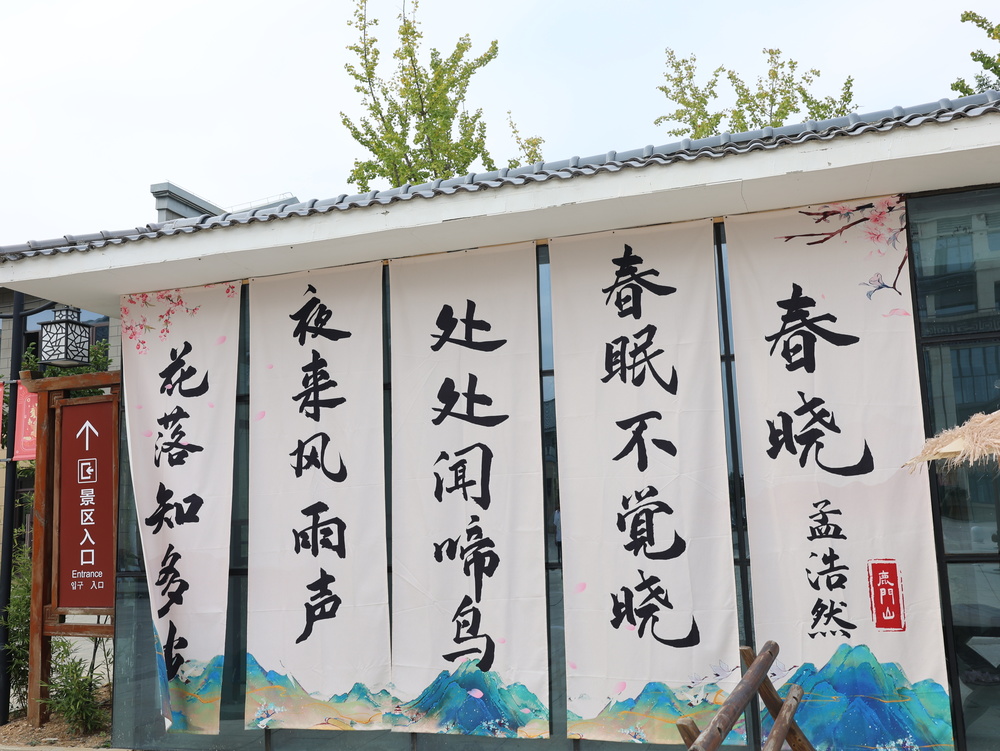 春晓
孟浩然
鹿門山
春眠不觉晓
处处闻啼鸟
夜来风雨声
花落知多少
景区入口
Entrance
입구 入口